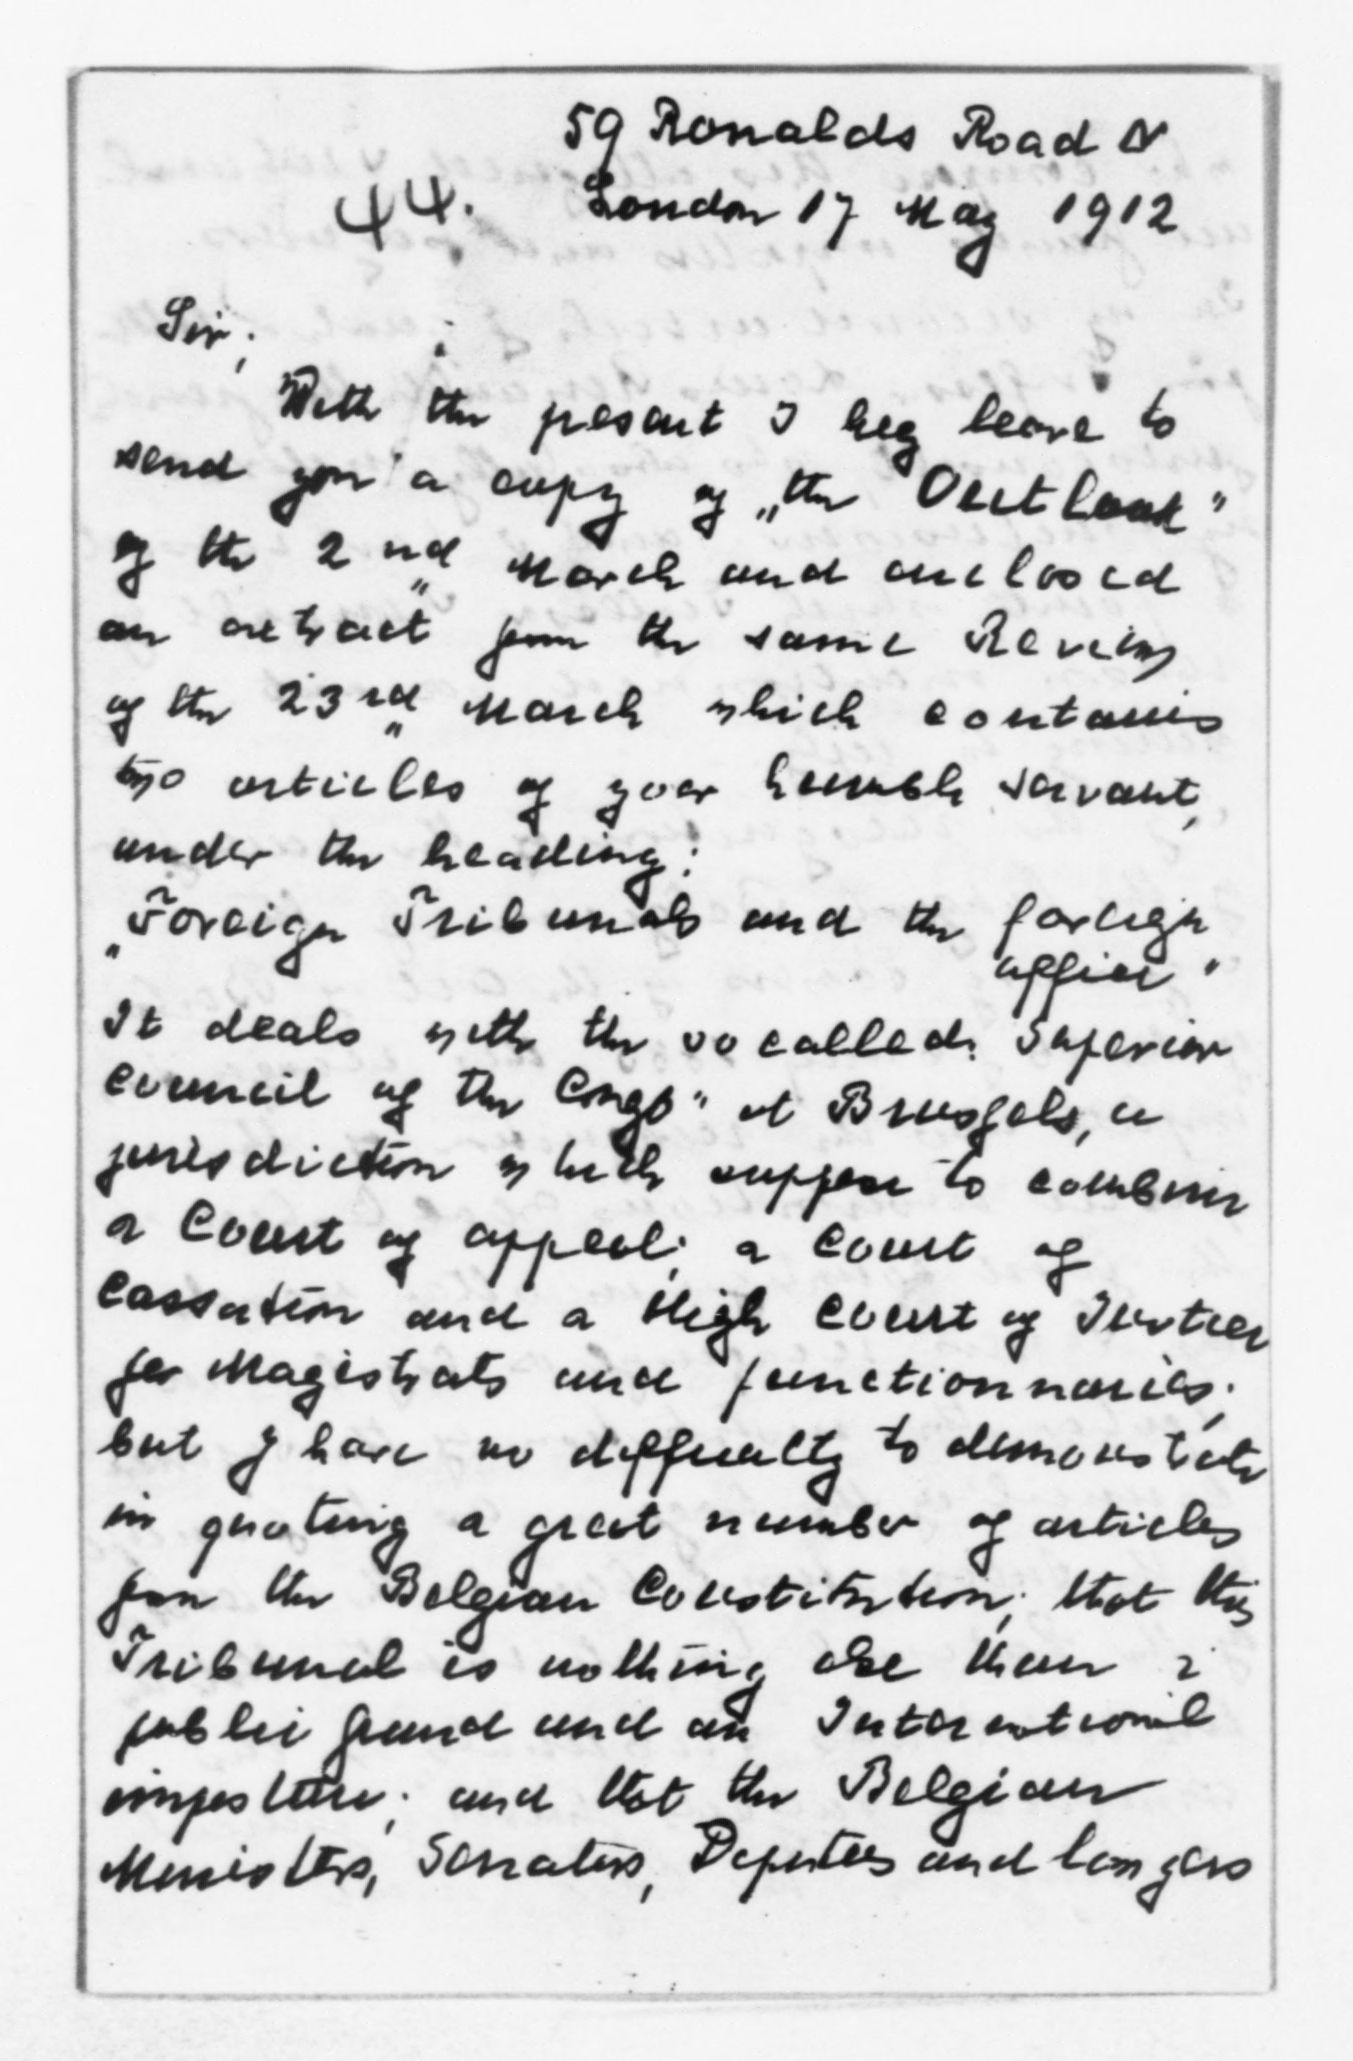 59 Ronalds Road N
44. London 17 May 1912
Sir,
With the present I beg leave to
send you a copy of „the Outlook"
of the 2nd March and enclosed
an extract from the same Review
of the 23rd March which contains
two articles of your humble servant,
under the heading:
„Foreign Tribunals and the foreign
office"
It deals with the so called: Superior
Council of the Congo" at Brussels, a
jurisdiction which suppose to combine
a Court of appeal, a Court of
Cassation and a High Court of Justice
for Magistrats and functionnaries,
but I have no difficulty to demonstrate
in quoting a great number of articles
from the Belgian Constitution, that this
Tribunal is nothing else than a
public fraud and an International
imposture, and that the Belgian
Ministers, Senators, Deputees and lawyers